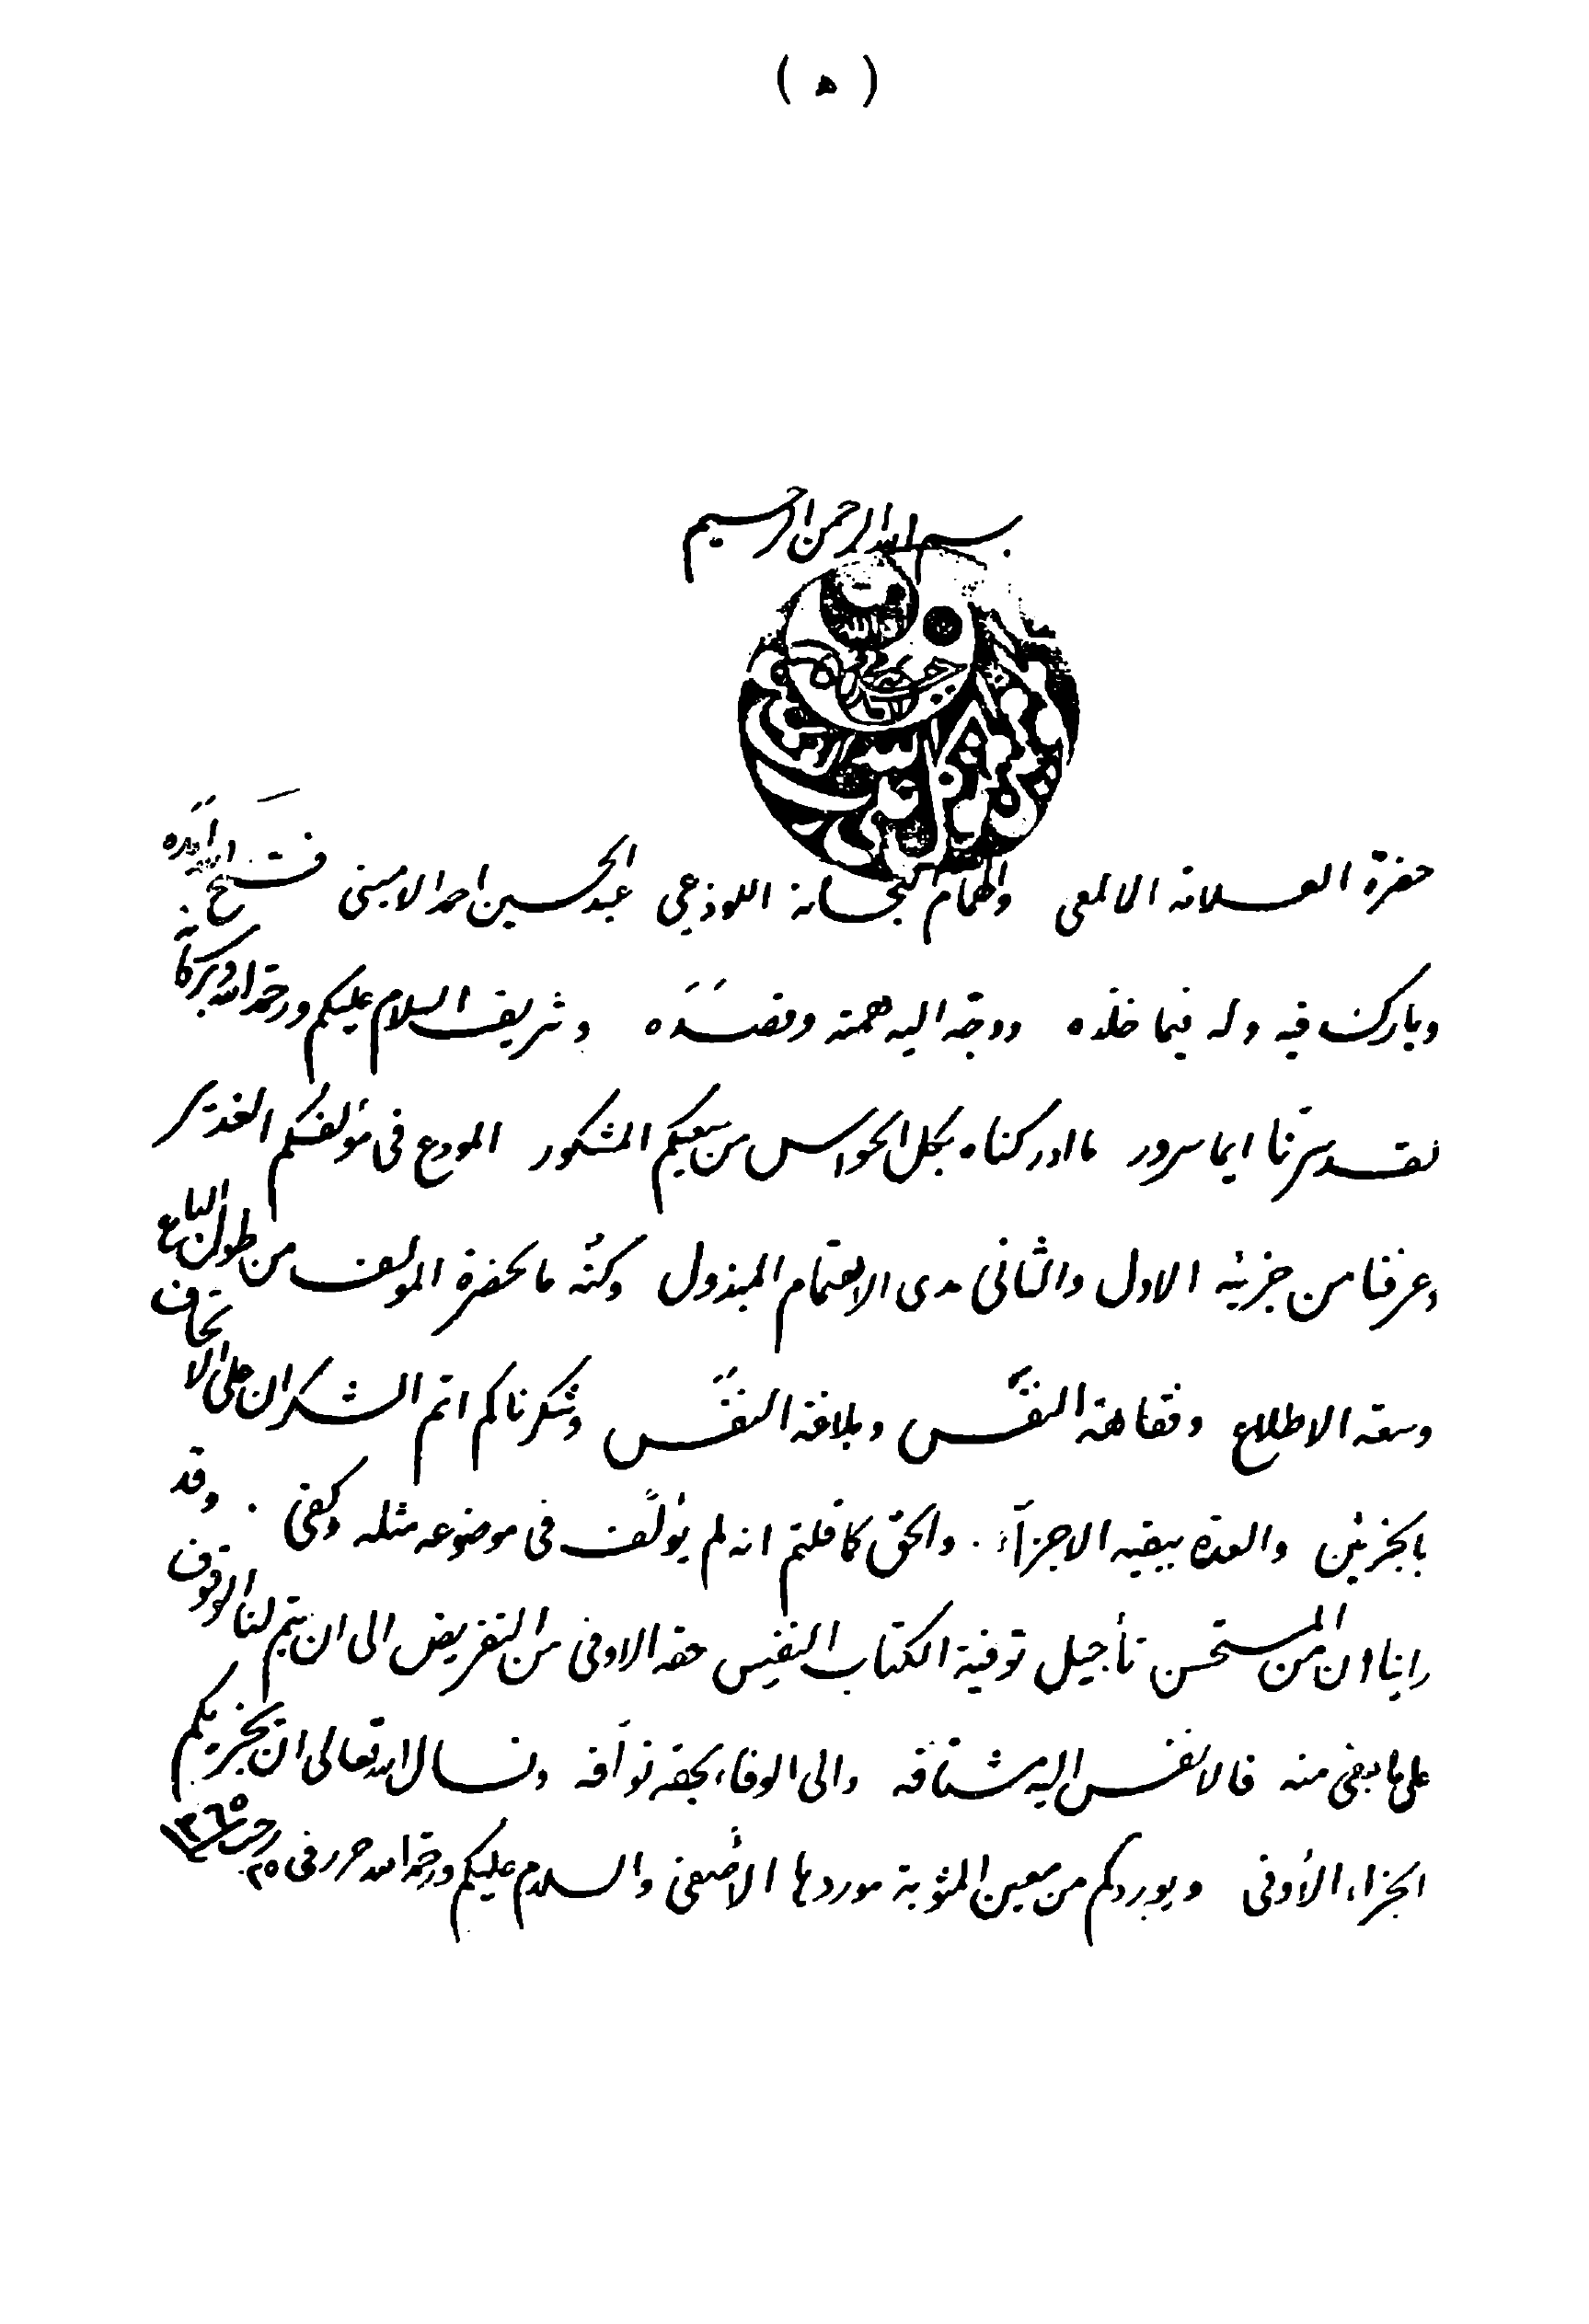 ( ه )
بسم الله الرحمن الرحيم
حضرة العلامة الالمعى والهمام البحاثة اللوذعي عبد الحسين احمد الامينى فسح الله أمده
وبارك فيه وله فيما خلّده ووجّه اليه همته وقصَدَه وشريف السلام عليكم ورحمة الله وبركاته
لقد سرّنا ايما سرور ما ادركناه بكل الحواس من سعيكم المشكور المودع فى مؤلفكم الغدير
وعرفنا من جزئيه الاول والثانى مدى الاهتمام المبذول وكنْه ما لحضرة المؤلف من طول الباع
وسعة الاطلاع وفقاهة النفْس وبلاغة النفَس وشكرناكم اتم الشكران على الاتحاف
بالجزئين والعدة ببقية الاجزآء . والحق كما قلتم انه لم يؤلَّف فى موضوعه مثله وكفى . وقد
راينا ان من المستحسن تأجيل توفية الكتاب النفيس حقه الاوفى من التقريض الى ان يتم لنا الوقوف
على ما بقى منه فالانفس اليه مشتاقه والى الوفاء بحقه توّاقه ونسال الله تعالى ان يجزيكم
الجزاء الأوفى ويوردكم من معين المثوبة موردها الأصفى والسلام عليكم ورحمة الله حرر فى ٢٥ رجب ١٣٦٥